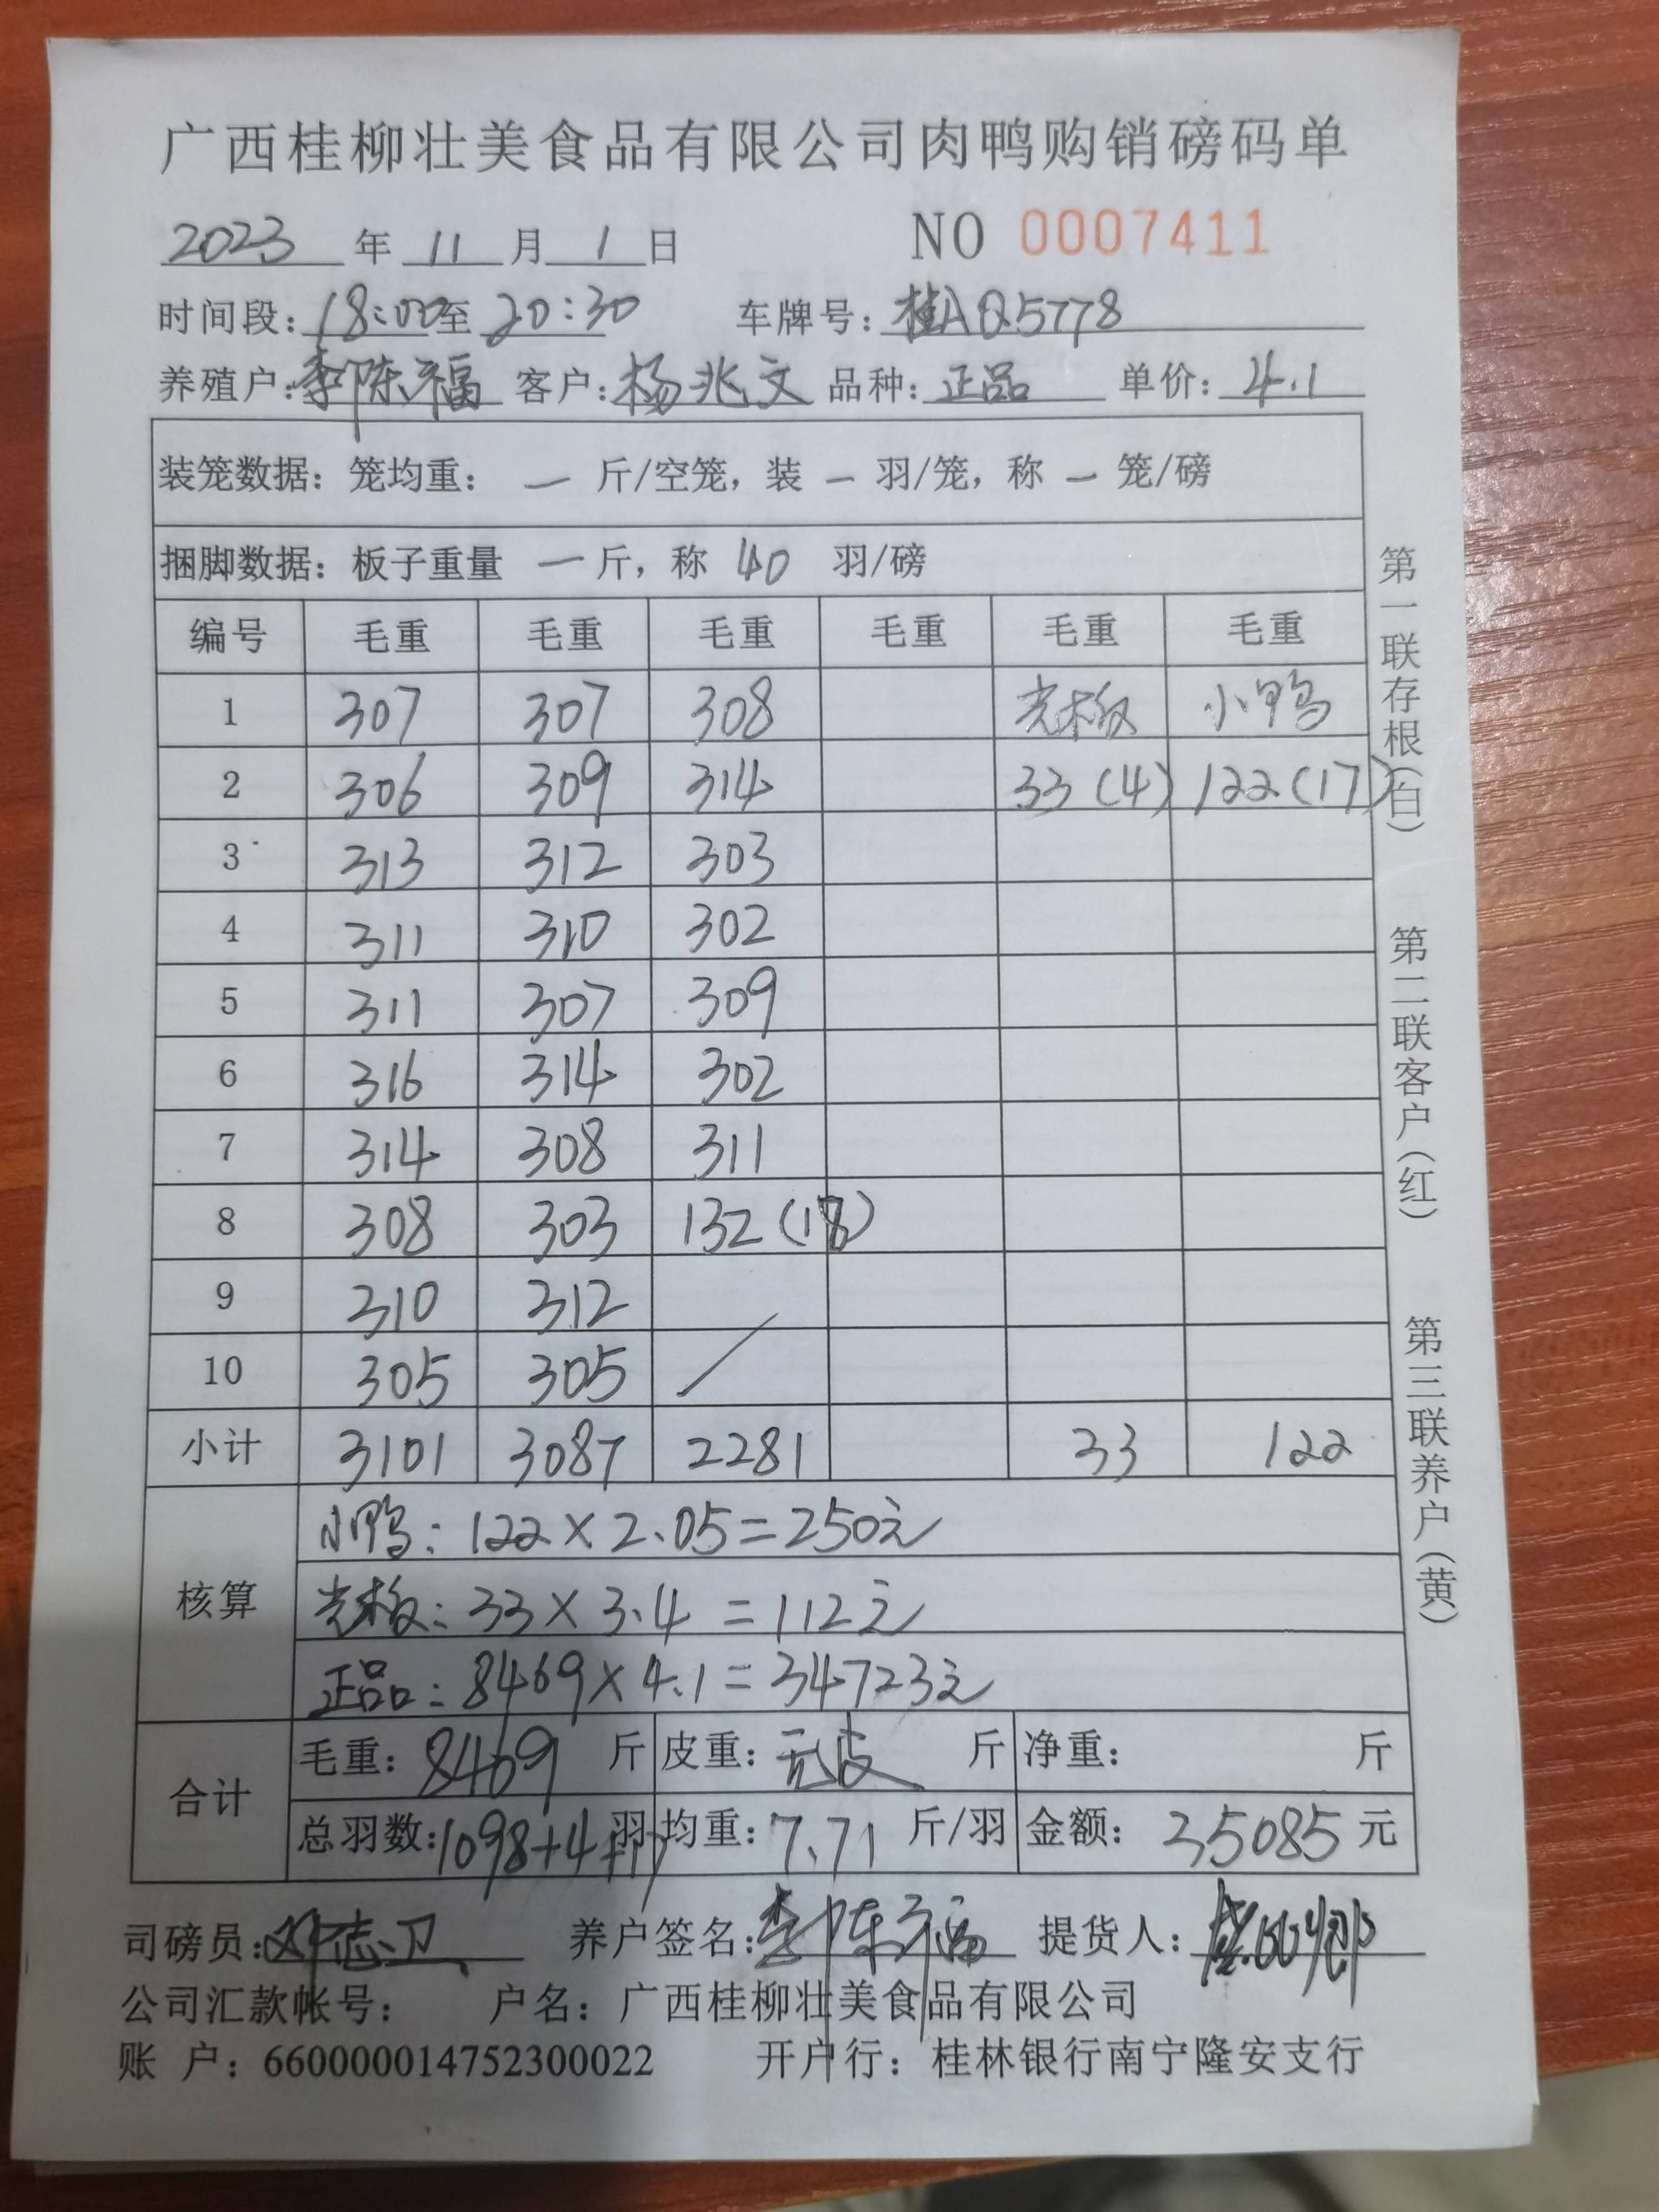 广西桂柳壮美食品有限公司肉鸭购销磅码单
2023 年 11 月 1 日 NO 0007411
时间段：18:00至 20:30 车牌号：桂AQ5778
养殖户：李陈福 客户：杨兆文 品种：正品 单价：4.1
装笼数据：笼均重： — 斤/空笼，装 — 羽/笼，称 — 笼/磅
捆脚数据：板子重量 — 斤，称 40 羽/磅
编号 毛重 毛重 毛重 毛重 毛重 毛重
1 307 307 308 光板 小鸭
2 306 309 314 33(4) 122(17)
3 313 312 303
4 311 310 302
5 311 307 309
6 316 314 302
7 314 308 311
8 308 303 132(18)
9 310 312
10 305 305
小计 3101 3087 2281 33 122
核算
小鸭：122×2.05=250元
光板：33×3.4=112元
正品：8469×4.1=34723元
合计
毛重：8469 斤 皮重：元皮 斤 净重： 斤
总羽数：1098+4+17 羽 均重：7.71 斤/羽 金额：35085 元
司磅员：邓志卫 养户签名：李陈福 提货人：
公司汇款帐号： 户名：广西桂柳壮美食品有限公司
账 户：660000014752300022 开户行：桂林银行南宁隆安支行
第一联存根（白）
第二联客户（红）
第三联养户（黄）